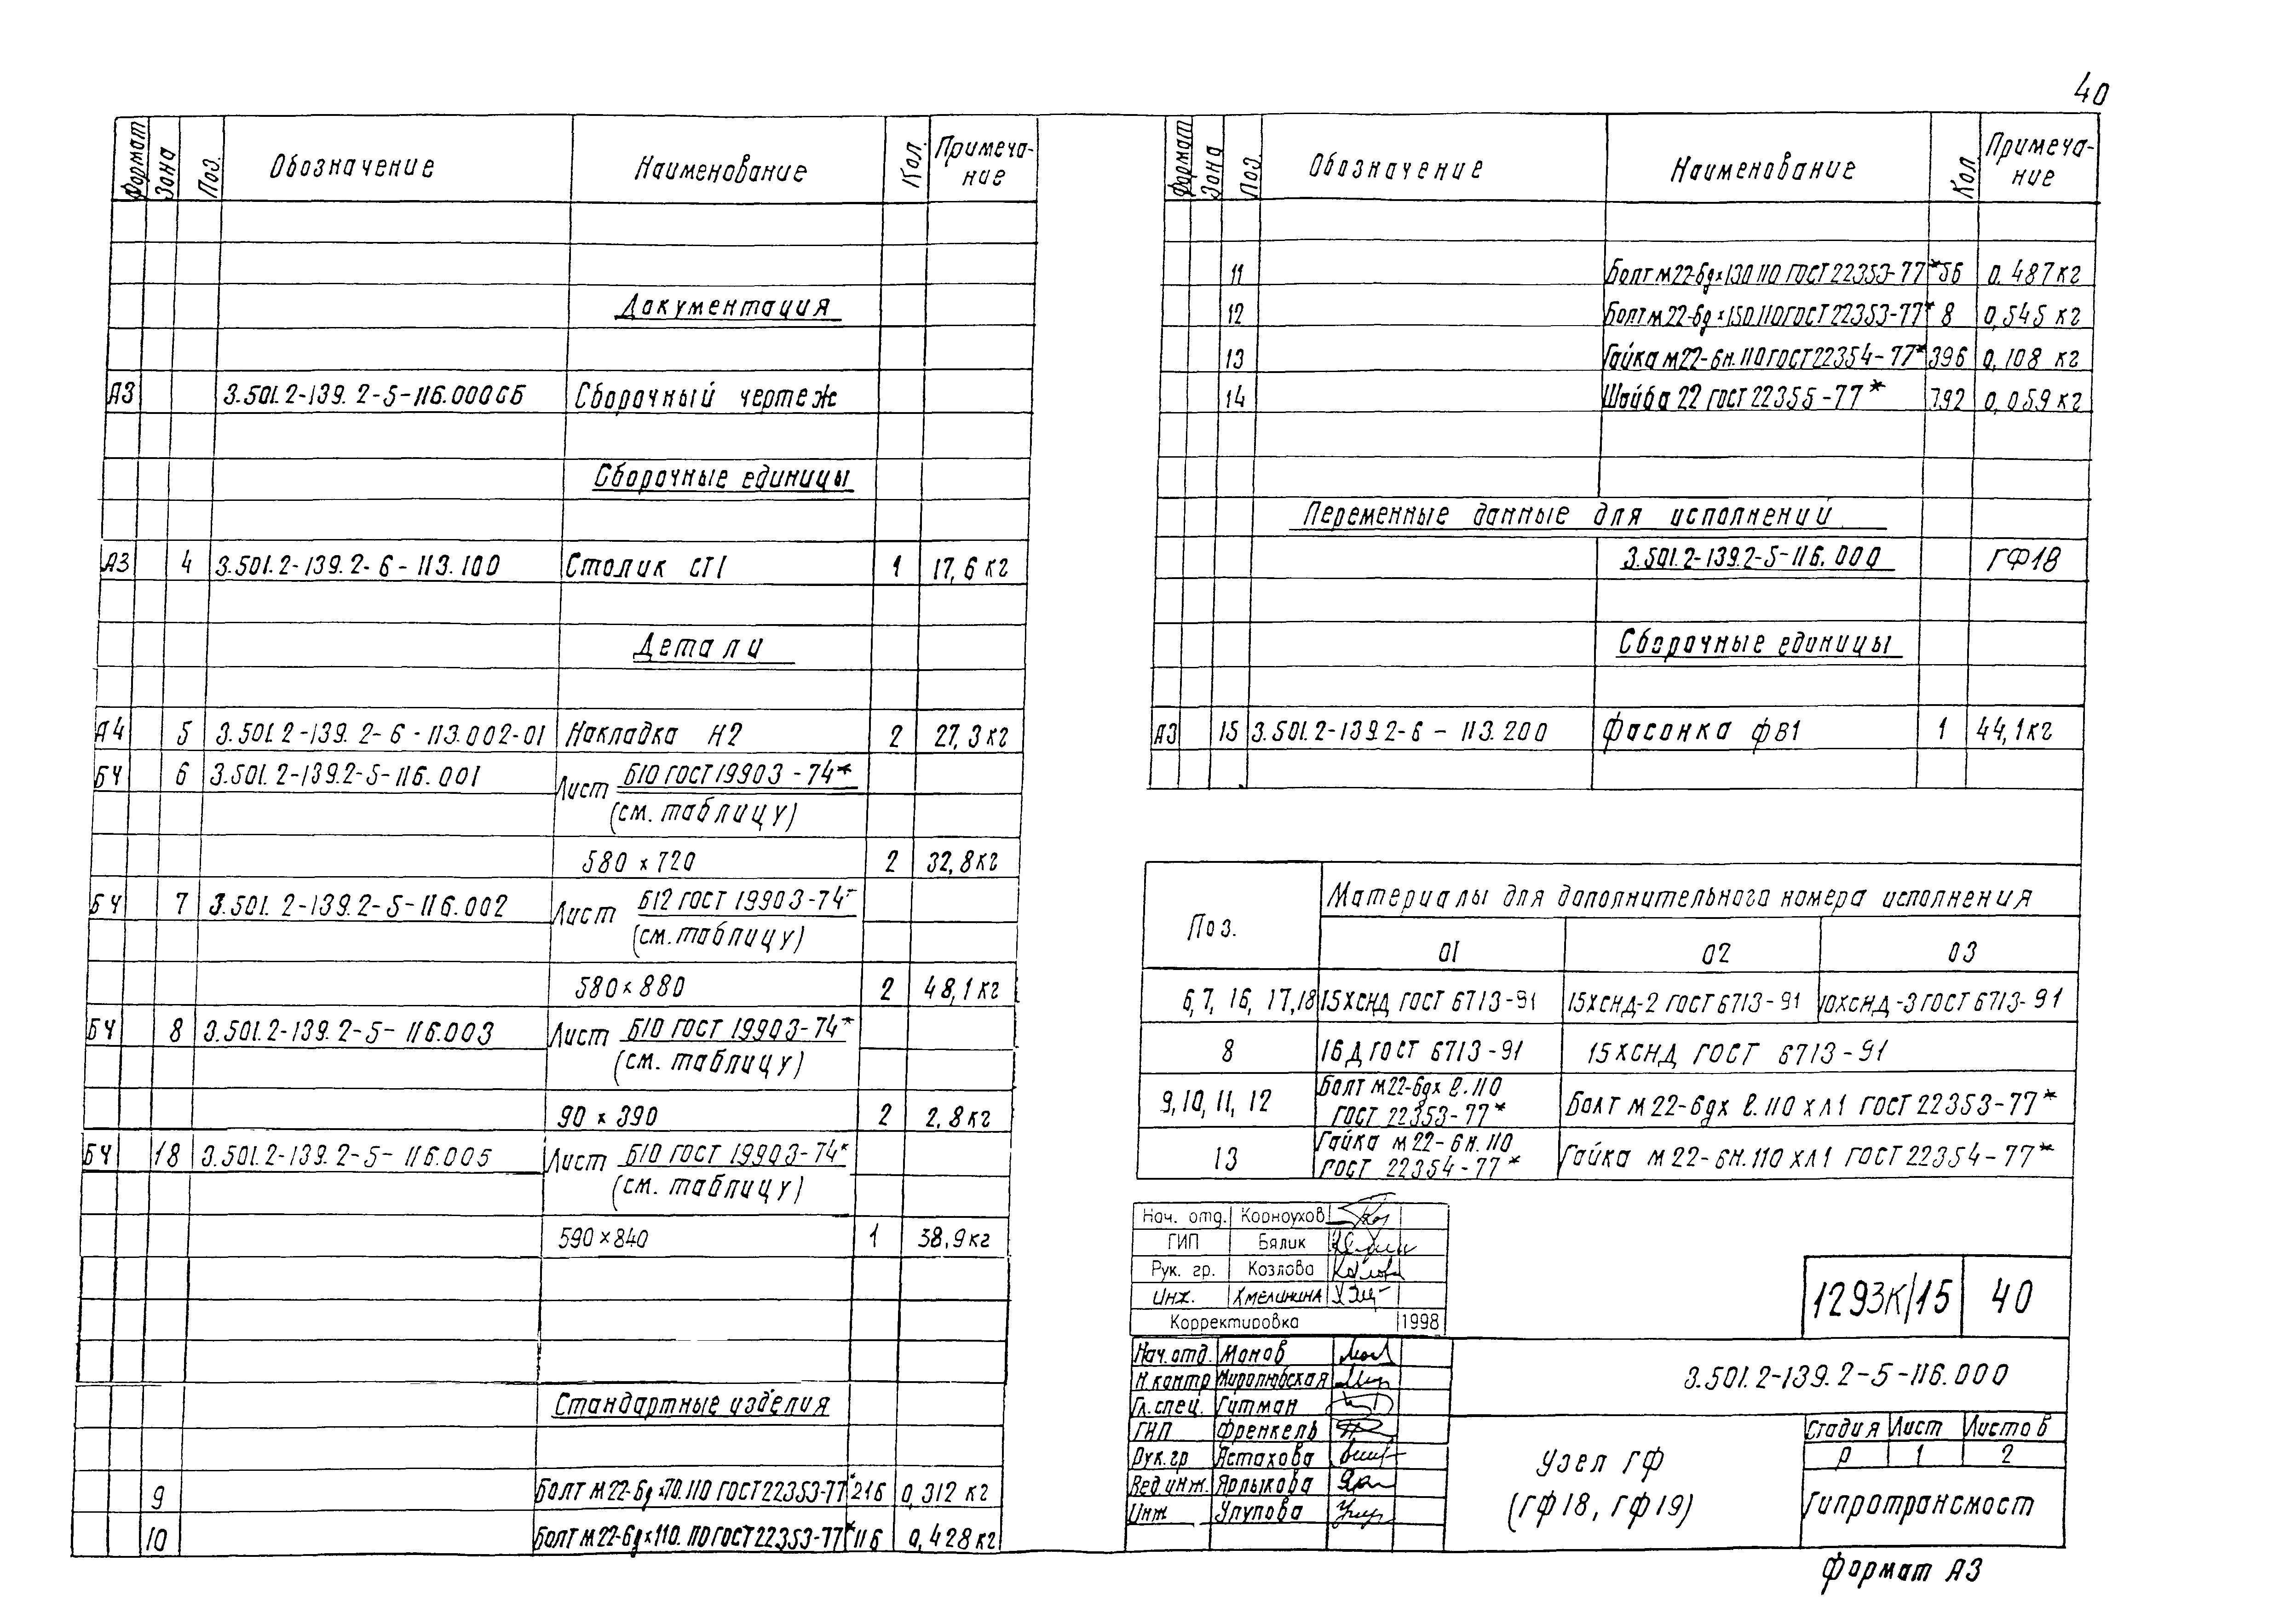 40
Формат Зона Поз. Обозначение Наименование Кол. Примеча-
ние
Документация
А3 3.501.2-139.2-5-116.000СБ Сборочный чертеж
Сборочные единицы
А3 4 3.501.2-139.2-6-113.100 Столик СТ1 1 17,6 кг
Детали
А4 5 3.501.2-139.2-6-113.002-01 Накладка Н2 2 27,3 кг
БЧ 6 3.501.2-139.2-5-116.001 Лист Б10 ГОСТ 19903-74*
(см. таблицу)
580 х 720 2 32,8 кг
БЧ 7 3.501.2-139.2-5-116.002 Лист Б12 ГОСТ 19903-74*
(см. таблицу)
580 х 880 2 48,1 кг
БЧ 8 3.501.2-139.2-5-116.003 Лист Б10 ГОСТ 19903-74*
(см. таблицу)
90 х 390 2 2,8 кг
БЧ 18 3.501.2-139.2-5-116.005 Лист Б10 ГОСТ 19903-74*
(см. таблицу)
590 х 840 1 38,9 кг
Стандартные изделия
9 Болт М22-6gх70.110 ГОСТ 22353-77* 216 0,312 кг
10 Болт М22-6gх110.110 ГОСТ 22353-77* 116 0,428 кг
Формат Зона Поз. Обозначение Наименование Кол. Примеча-
ние
11 Болт М22-6gх130.110 ГОСТ 22353-77* 56 0,487 кг
12 Болт М22-6gх150.110 ГОСТ 22353-77* 8 0,545 кг
13 Гайка М22-6Н.110 ГОСТ 22354-77* 396 0,108 кг
14 Шайба 22 ГОСТ 22355-77* 792 0,059 кг
Переменные данные для исполнений
3.501.2-139.2-5-116.000 ГФ18
Сборочные единицы
А3 15 3.501.2-139.2-6-113.200 Фасонка ФВ1 1 44,1 кг
Поз. Материалы для дополнительного номера исполнения
01 02 03
6, 7, 16, 17,18 15ХСНД ГОСТ 6713-91 15ХСНД-2 ГОСТ 6713-91 10ХСНД-3 ГОСТ 6713-91
8 16Д ГОСТ 6713-91 15ХСНД ГОСТ 6713-91
9, 10, 11, 12 Болт М22-6gх ℓ.110
ГОСТ 22353-77* Болт М22-6gх ℓ.110 ХЛ1 ГОСТ 22353-77*
13 Гайка М22-6Н.110
ГОСТ 22354-77* Гайка М22-6Н.110 ХЛ1 ГОСТ 22354-77*
Нач. отд. Корноухов
ГИП Бялик
Рук. гр. Козлова
Инж. Хмелинина
Корректировка 1998
1293К/15 40
Нач. отд. Монов
Н.контр Миролюбская
Гл. спец. Гитман
ГИП Френкель
Рук. гр Астахова
Вед.инж. Ярлыкова
Инж Улупова
3.501.2-139.2-5-116.000
Узел ГФ
(ГФ18, ГФ19)
Стадия Лист Листов
Р 1 2
Гипротрансмост
Формат А3